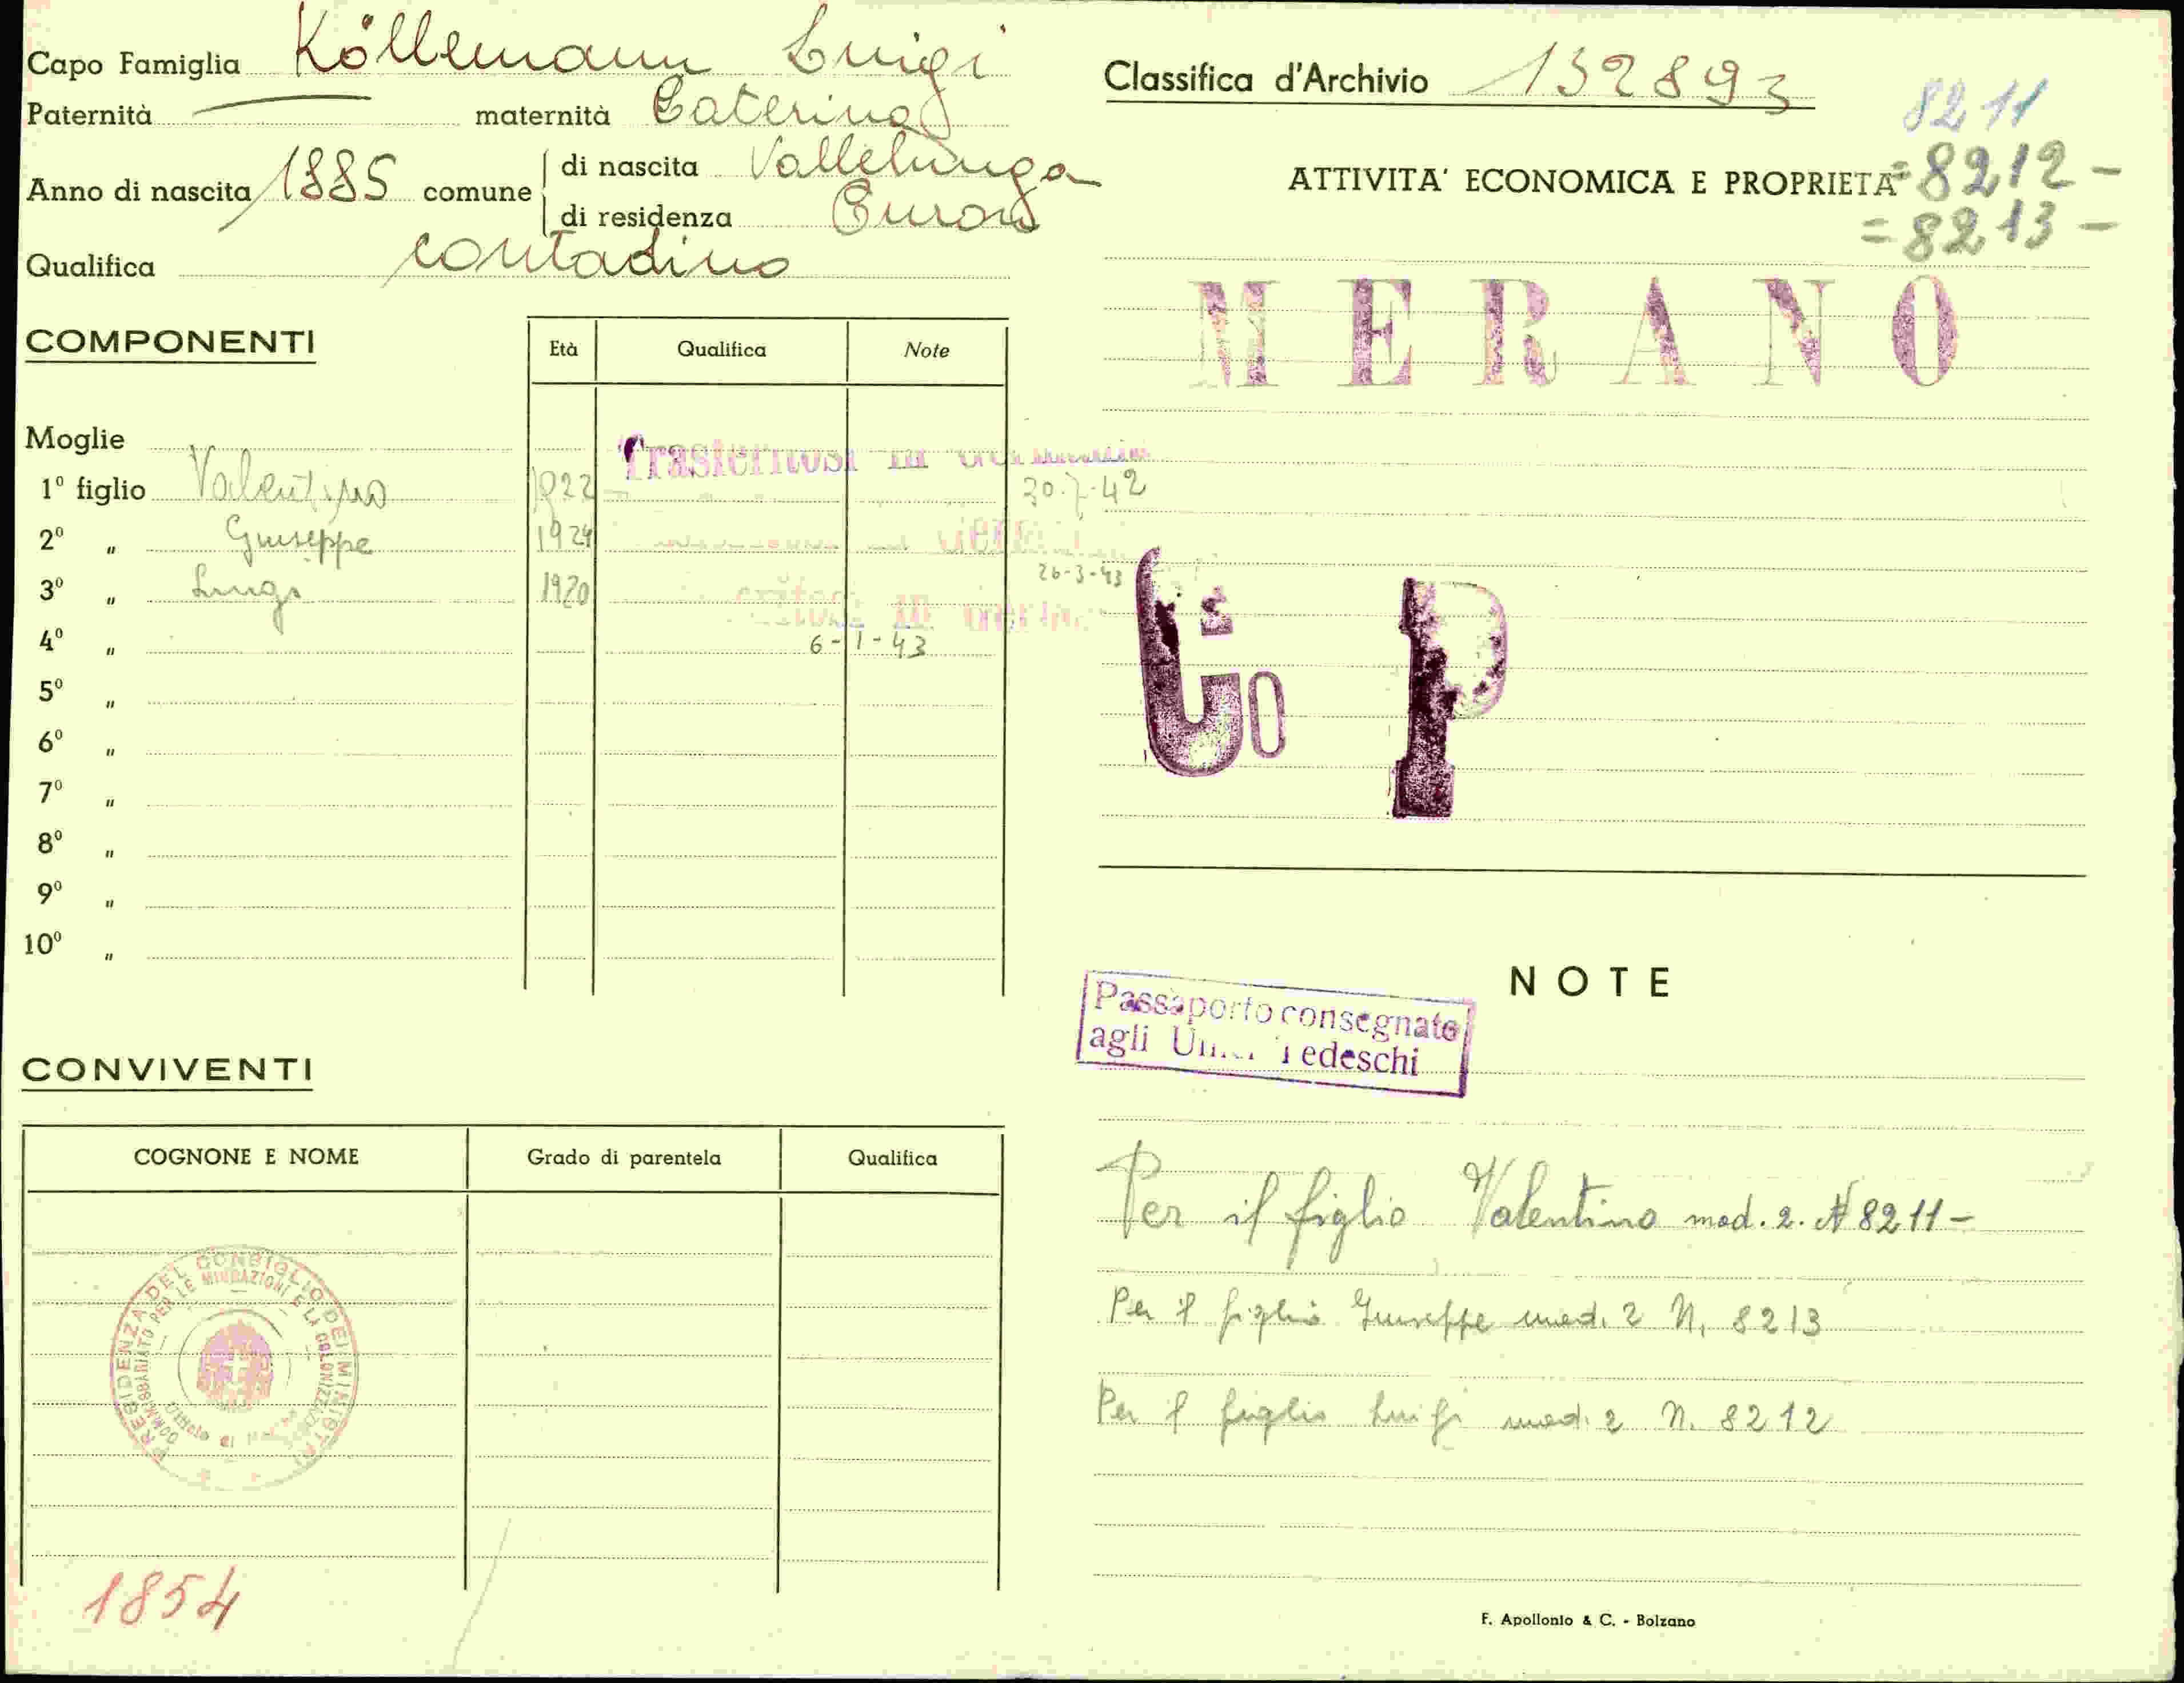 Capo Famiglia Köllemann Luigi
Paternità maternità Caterina
Anno di nascita 1885 comune di nascita Vallelunga
di residenza Curon
Qualifica contadino
COMPONENTI
Età Qualifica Note
Moglie
1º figlio Valentino 1922
30-7-42
2º " Giuseppe 1924
26-3-43
3º " Luigi 1920
4º "
6-1-43
5º "
6º "
7º "
8º "
9º "
10º "
CONVIVENTI
COGNONE E NOME Grado di parentela Qualifica
PRESIDENZA DEL CONSIGLIO DEI MINISTRI
COMMISSARIATO PER LE MIGRAZIONI E LA COLONIZZAZIONE
1854
Classifica d'Archivio 132893
8211
ATTIVITA' ECONOMICA E PROPRIETA' =8212-
=8213-
MERANO
P
NOTE
Passaporto consegnato
agli Tedeschi
Per il figlio Valentino mod. 2. N 8211-
Per il figlio Giuseppe mod. 2 N. 8213
Per il figlio Luigi mod. 2 N. 8212
F. Apollonio & C. - Bolzano